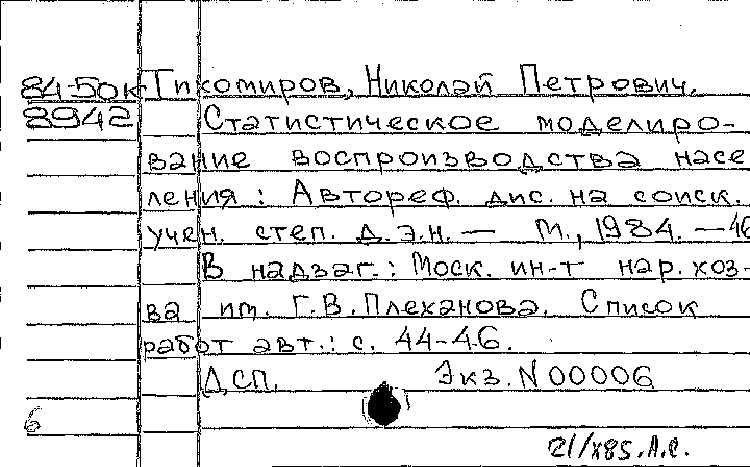 84-50к Тихомиров, Николай Петрович.
8942 Статистическое моделиро-
вание воспроизводства насе
ления : Автореф. дис. на соиск.
учен. степ. д.э.н. — М., 1984. — 46
В надзаг.: Моск. ин-т нар. хоз-
ва им. Г.В. Плеханова. Список
работ авт.: с. 44-46.
ДСП. Экз. N 00006
6